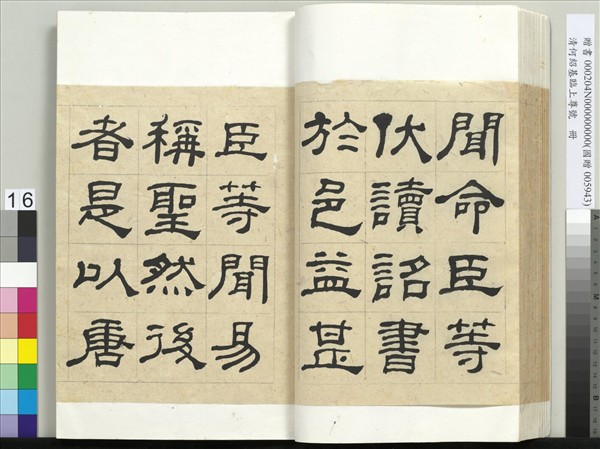 聞命臣等
伏讀詔書
於邑益甚
臣等聞易
稱聖然後
者是以唐
贈書 000204N000000000(國贈 005943)
清何紹基臨上尊號 冊
16